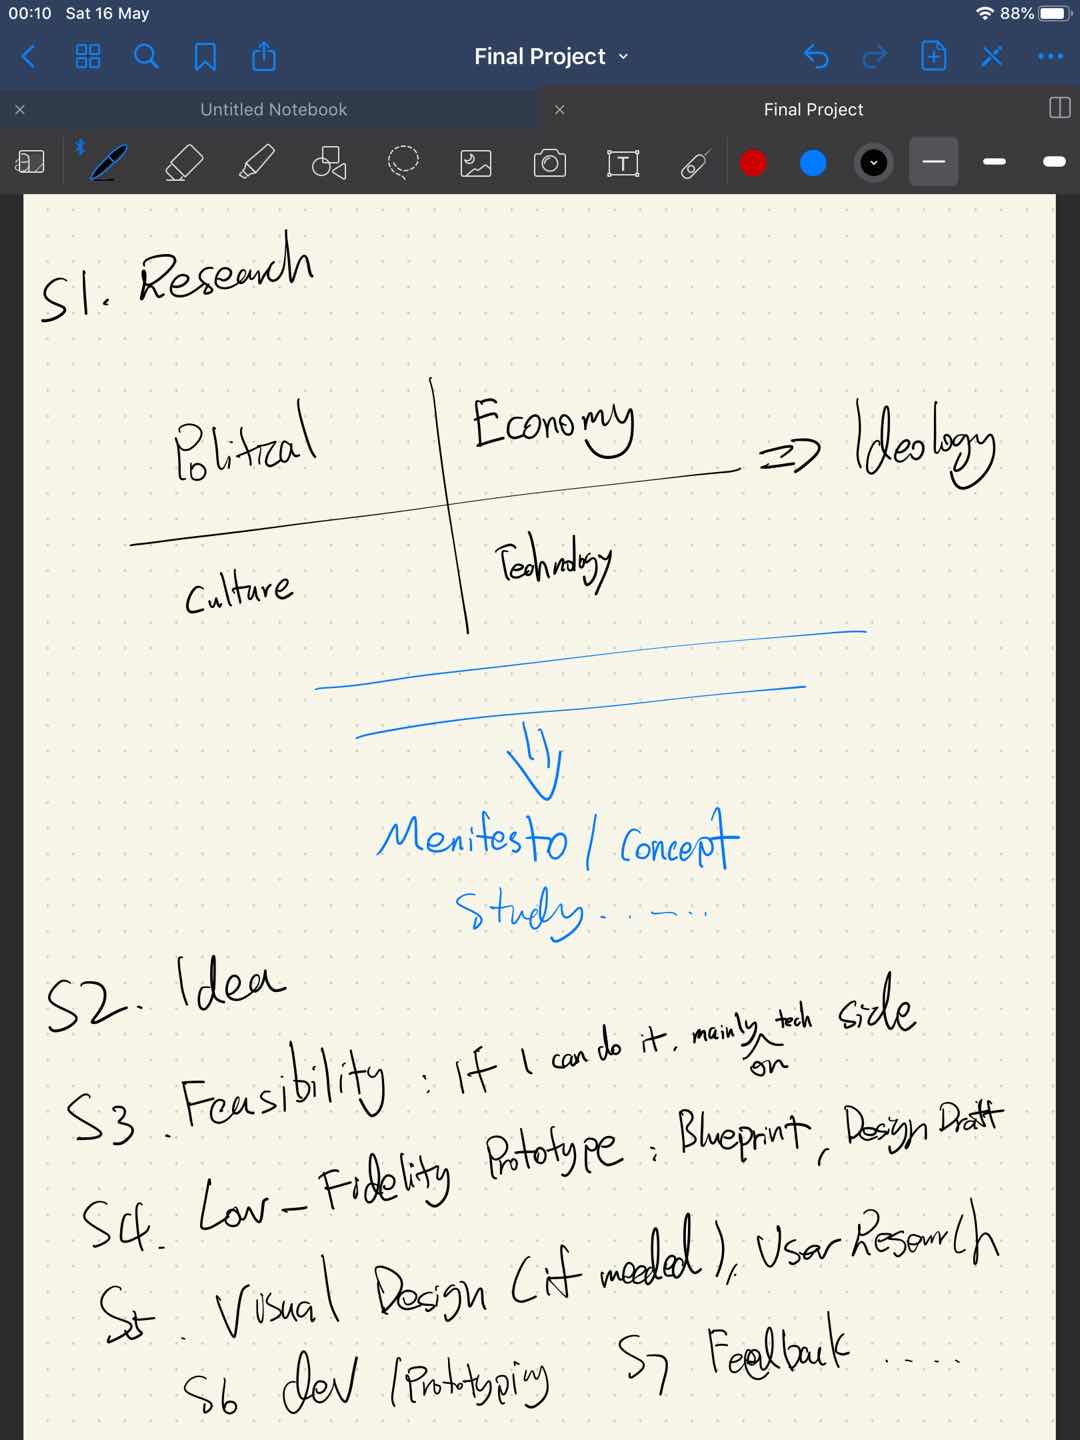 00:10 Sat 16 May 88%
Final Project
Untitled Notebook
Final Project
S1. Research
Political
Economy
=> Ideology
Culture
Technology
Menifesto / Concept
Study.......
S2. Idea
S3. Feasibility : If I can do it. mainly on tech side
S4. Low-Fidelity Prototype : Blueprint, Design Draft
S5. Visual Design (if needed), User Research
S6 dev / Prototyping S7 Feedback .....